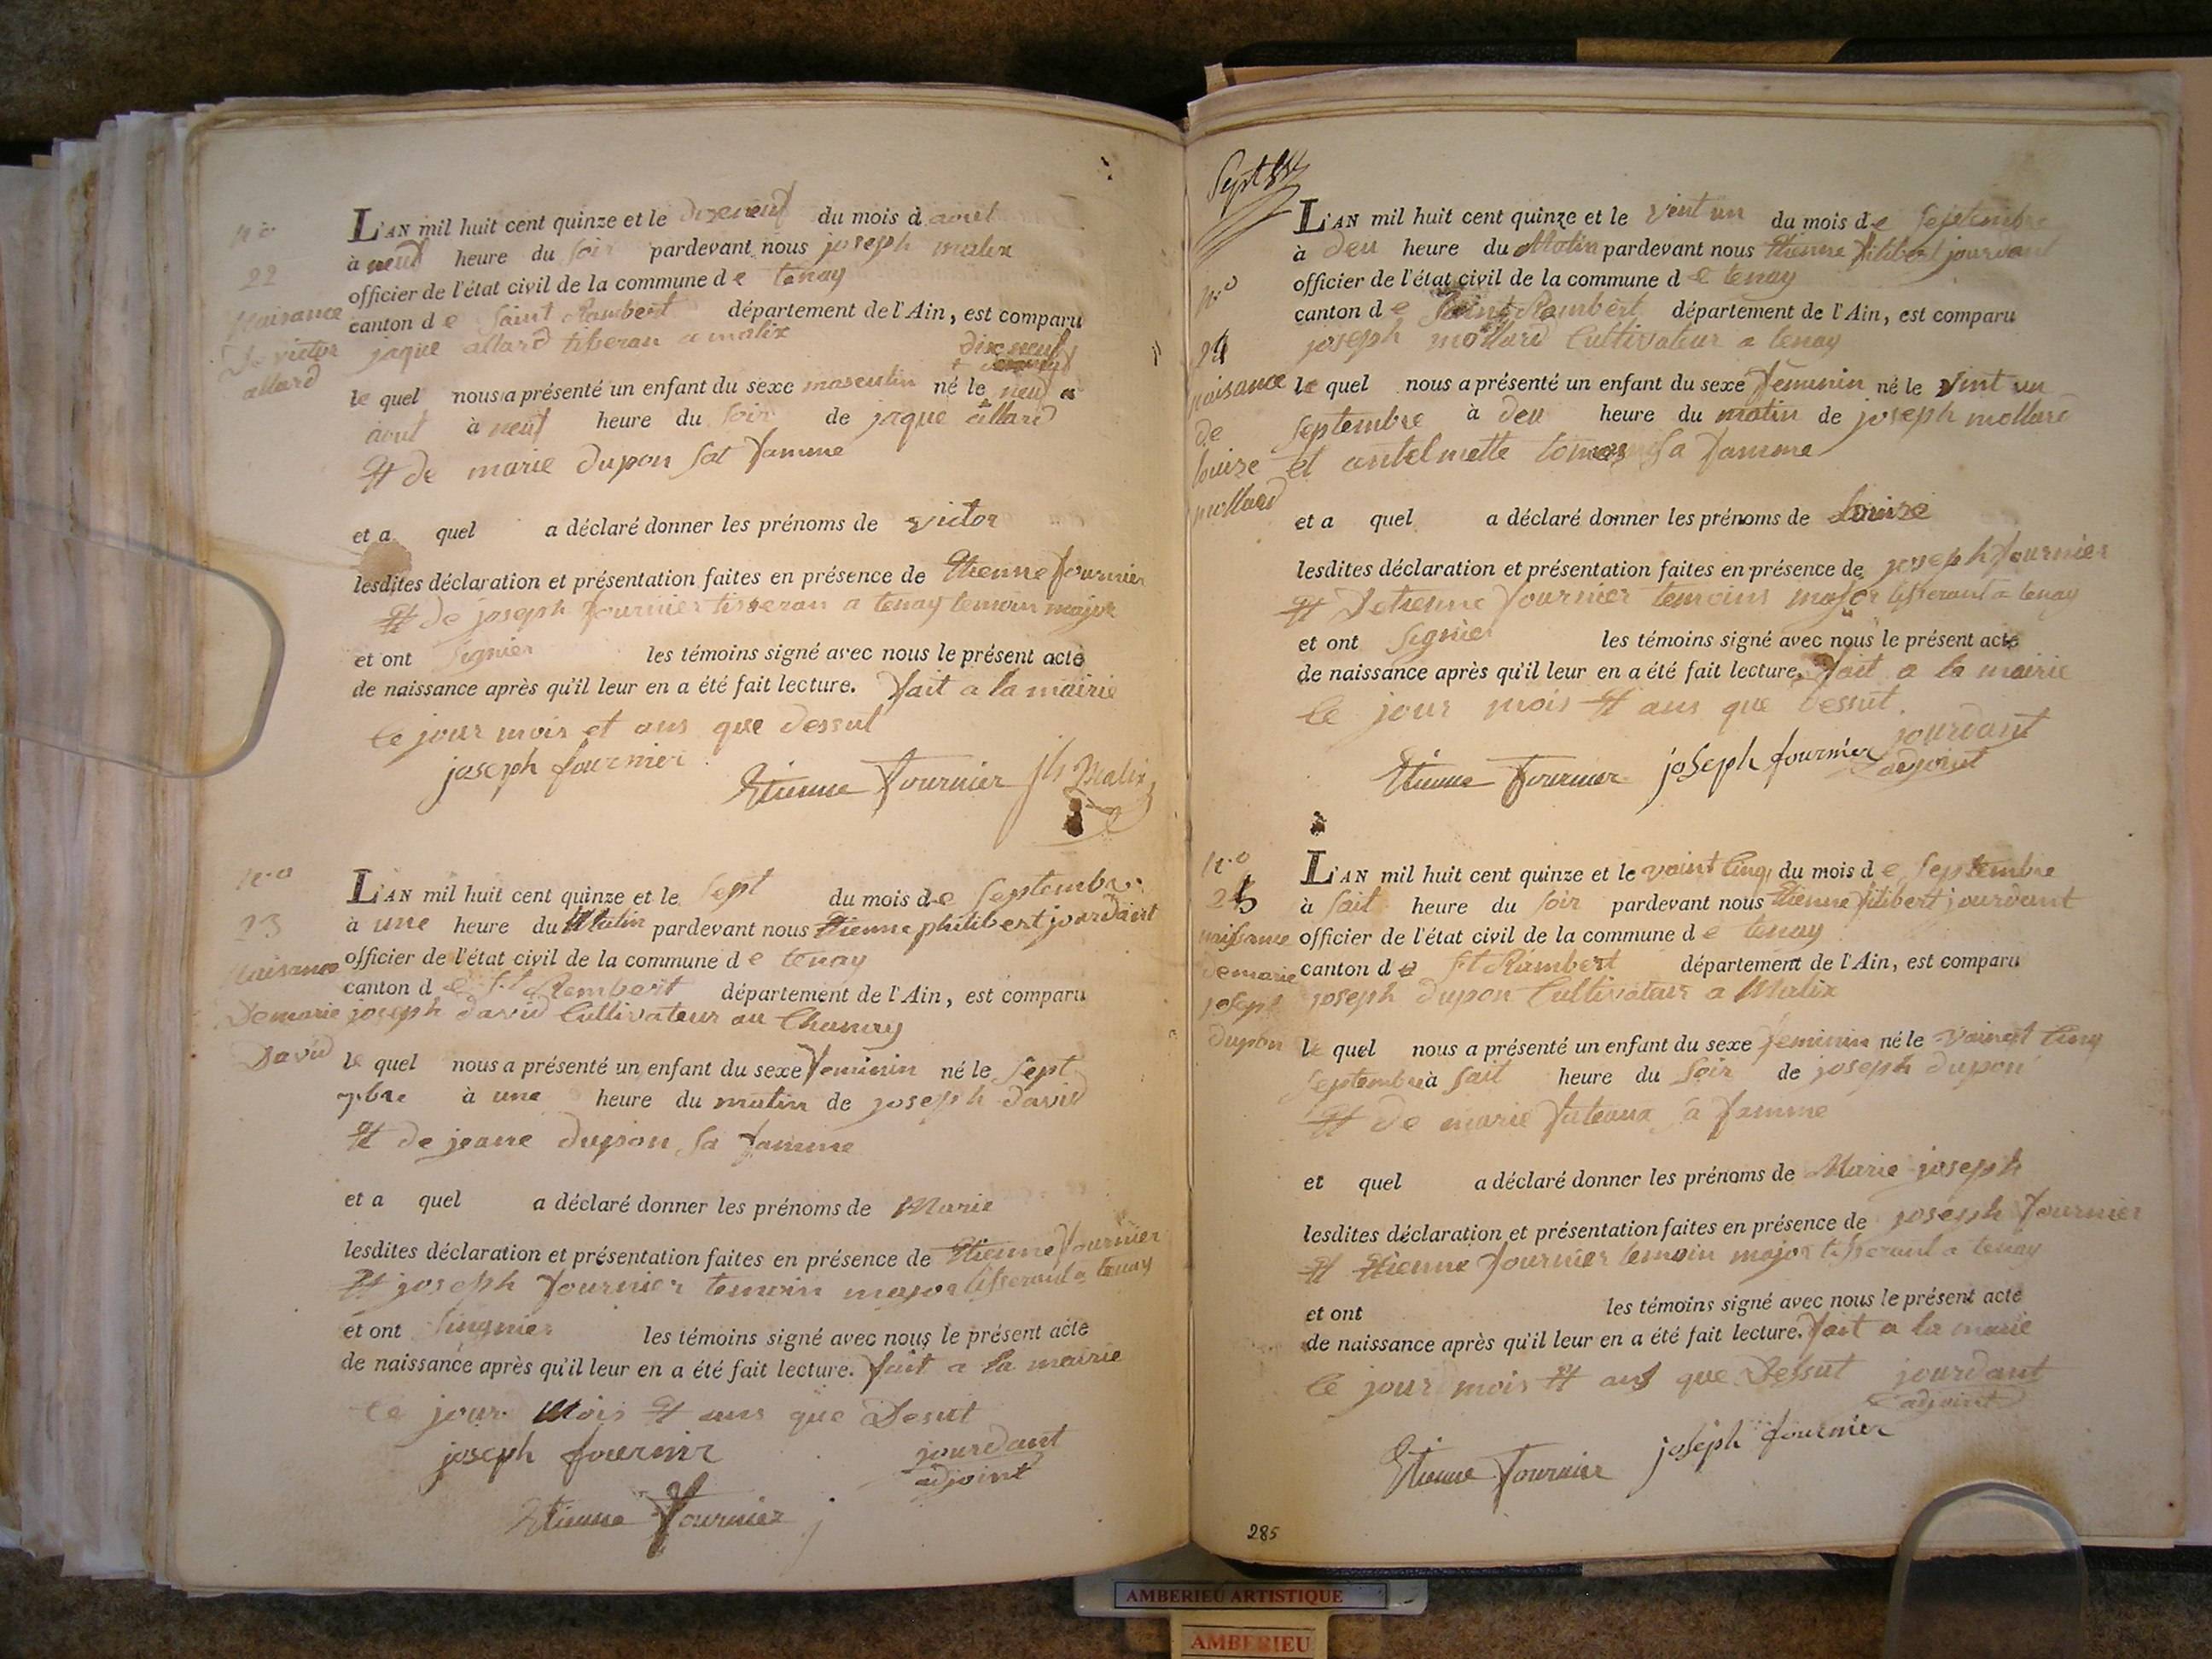 n.o
22
Naisance
De victor
allard
L'AN mil huit cent quinze et le dizeneuf du mois d aout
à neuf heure du soir pardevant nous joseph malix
officier de l'état civil de la commune d e tenay
canton d e Saint Rambert département de l'Ain, est comparu
jaque allard tiseran a malix
dix neuf
le quel nous a présenté un enfant du sexe masculin né le neuf
aout à neuf heure du soir de jaque allard
Et de marie dupon sa famme
et a quel a déclaré donner les prénoms de victor
lesdites déclaration et présentation faites en présence de Etienne fournier
Et de joseph fournier tisseran a tenay temoin major
et ont signier les témoins signé avec nous le présent acte
de naissance après qu'il leur en a été fait lecture. fait a la mairie
le jour mois et ans que dessut
joseph fournier
Etienne Fournier jh Malix
n.o
23
Naisance
De marie
David
L'AN mil huit cent quinze et le sept du mois d e Septembre
à une heure du Matin pardevant nous Etienne philibert jourdant
officier de l'état civil de la commune d e tenay
canton d e St Rembert département de l'Ain, est comparu
joseph david Cultivateur au Chanay
le quel nous a présenté un enfant du sexe feminin né le sept
7bre à une heure du matin de joseph david
Et de jeane dupon sa famme
et a quel a déclaré donner les prénoms de Marie
lesdites déclaration et présentation faites en présence de Etienne fournier
Et joseph fournier temoin major tisserant a tenay
et ont singnier les témoins signé avec nous le présent acte
de naissance après qu'il leur en a été fait lecture. fait a la mairie
le jour Mois Et ans que Desut
joseph fournir
jourdant
adjoint
Etienne Fournier
n.o
24
naisance
de
louize
mollard
L'AN mil huit cent quinze et le vint un du mois d e Septembre
à deu heure du Matin pardevant nous Etienne filibert jourdant
officier de l'état civil de la commune d e tenay
canton d e Saint Rambert département de l'Ain, est comparu
joseph mollard Cultivateur a tenay
le quel nous a présenté un enfant du sexe feminin né le vint un
septembre à deu heure du matin de joseph mollard
et antelmette sa famme
et a quel a déclaré donner les prénoms de Louize
lesdites déclaration et présentation faites en présence de joseph fournier
Et Detienne fournier temoins major tisserant a tenay
et ont signier les témoins signé avec nous le présent acte
de naissance après qu'il leur en a été fait lecture. fait a la mairie
le jour mois Et ans que dessut.
jourdant
adjoint
Etienne Fournier joseph fournier
n.o
25
naissance
de marie
joseph
dupon
L'AN mil huit cent quinze et le vaint Cinq du mois d e Septembre
à sait heure du soir pardevant nous Etienne filibert jourdant
officier de l'état civil de la commune d e tenay
canton d e St Rambert département de l'Ain, est comparu
joseph dupon Cultivateur a Malix
le quel nous a présenté un enfant du sexe feminin né le vainct Cinq
septembre à sait heure du soir de joseph dupon
Et de marie futeaux sa famme
et quel a déclaré donner les prénoms de Marie joseph
lesdites déclaration et présentation faites en présence de joseph fournier
Et Etienne fournier temoin major tisserant a tenay
et ont les témoins signé avec nous le présent acte
de naissance après qu'il leur en a été fait lecture. fait a la marie
le jour mois Et ans que Dessut jourdant
adjoint
Etienne Fournier joseph fournier
285
AMBERIEU ARTISTIQUE
AMBERIEU